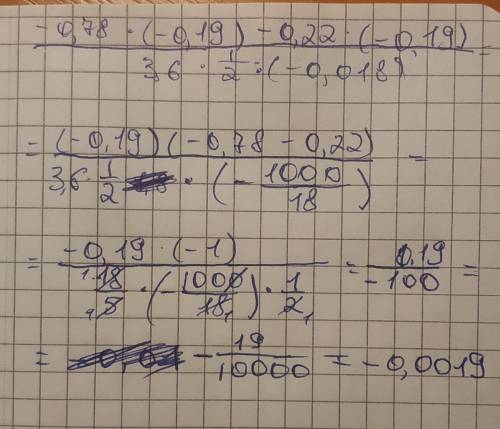 -0,78 · (-0,19) - 0,22 · (-0,19) =
3,6 · 1/2 : (-0,018)
= (-0,19)(-0,78 - 0,22) =
3,6 · 1/2 · (- 1000/18)
= -0,19 · (-1) = 0,19 =
18/5 · (- 1000/18) · 1/2 -100
= - 19/10000 = -0,0019